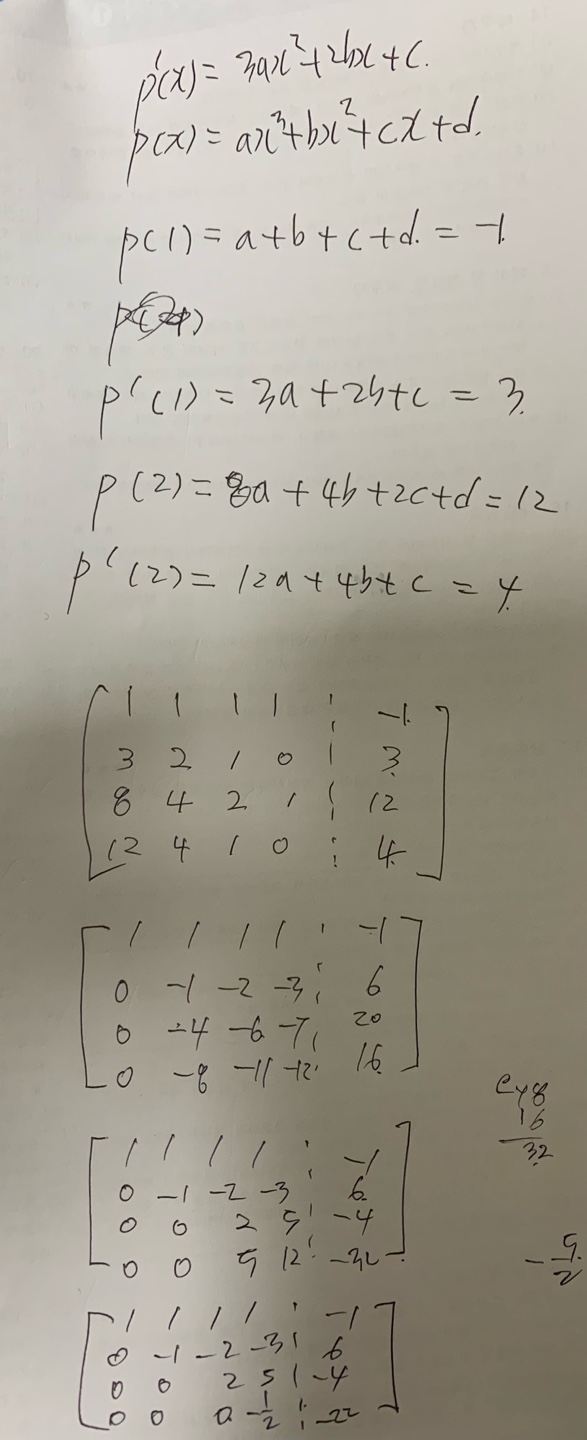 p'(x) = 3ax²+2bx+c.
p(x) = ax³+bx²+cx+d.
p(1) = a+b+c+d. = -1.
p'(1) = 3a+2b+c = 3.
p(2) = 8a + 4b+2c+d = 12
p'(2) = 12a+4b+c = 4.
1 1 1 1 ¦ -1.
3 2 1 0 ¦ 3.
8 4 2 1 ¦ 12
12 4 1 0 ¦ 4.
1 1 1 1 ¦ -1
0 -1 -2 -3 ¦ 6
0 -4 -6 -7 ¦ 20
0 -8 -11 -12 ¦ 16
16
32
1 1 1 1 ¦ -1
0 -1 -2 -3 ¦ 6.
0 0 2 5 ¦ -4
0 0 5 12 ¦ -32
-5/2
1 1 1 1 ¦ -1
0 -1 -2 -3 ¦ 6
0 0 2 5 ¦ -4
0 0 0 -1/2 ¦ -22